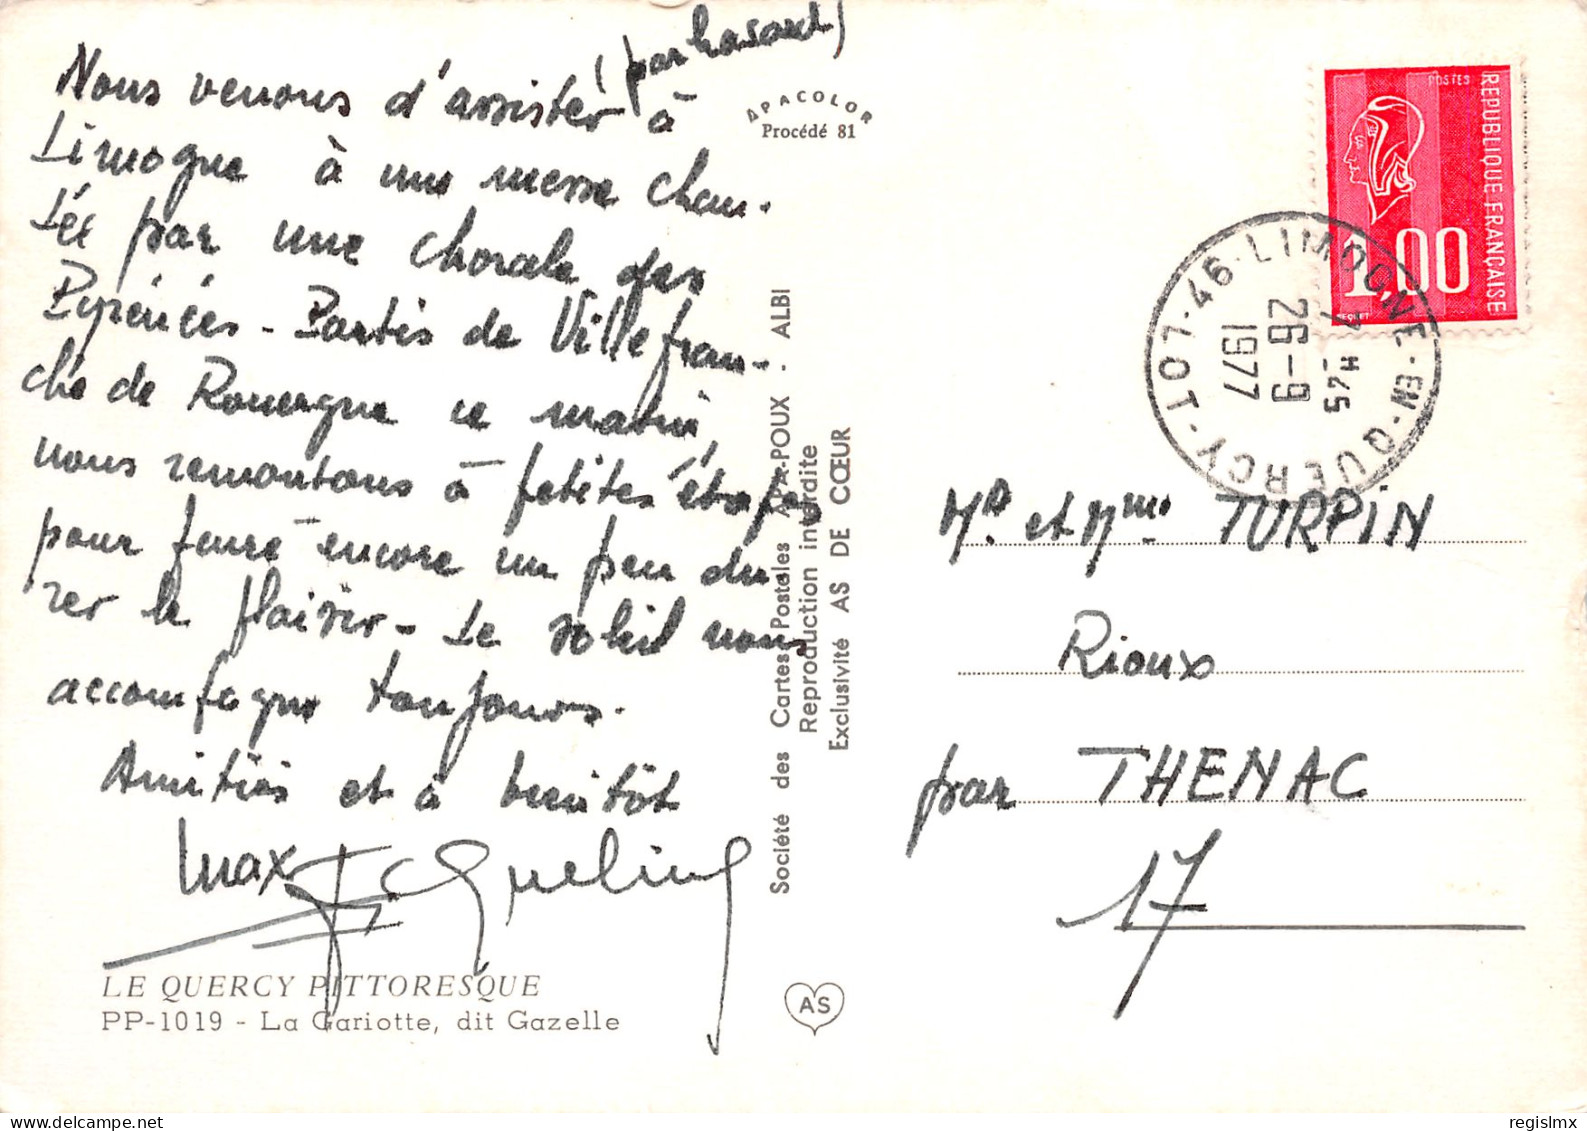 Nous venons d'assister (par hasard) à
Limogne à une messe chan-
tée par une chorale des
Pyrénées - Partis de Villefran-
che de Rouergue ce matin,
nous remontons à petites étapes
pour faire encore un peu du-
rer le plaisir - Le soleil nous
accompagne toujours.
Amitiés et à bientôt
Max Jacqueline
LE QUERCY PITTORESQUE
PP-1019 - La Gariotte, dit Gazelle
APACOLOR
Procédé 81
Société des Cartes Postales APA-POUX - ALBI
Reproduction interdite
Exclusivité AS DE CŒUR
AS
POSTES
REPUBLIQUE FRANÇAISE
1,00
BEQUET
LIMOGNE-EN-QUERCY - LOT - 46
26-9
1977
Mr et Mme TURPIN
Rioux
par THENAC
17
regislmx
Delcampe.net